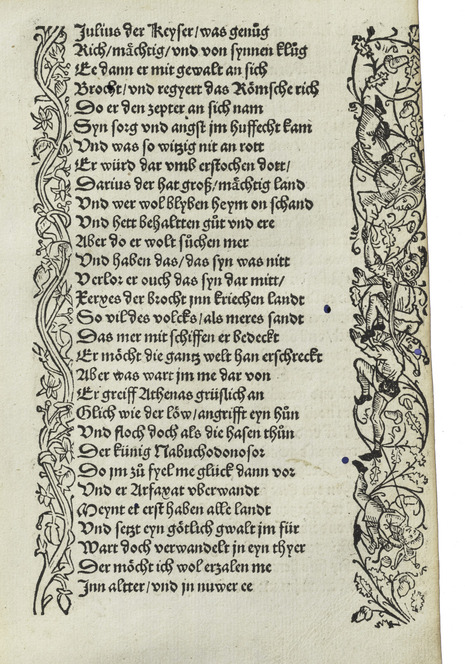 Julius der Keyser/was genůg
Rich/måchtig/vnd von synnen klůg
Ee dann er mit gewalt an sich
Brocht/vnd regyert das Rômsche rich
Do er den zepter an sich nam
Syn sorg vnd angst jm huffecht kam
Vnd was so witzig nit an rott
Er würd dar vmb erstochen dott/
Darius der hat groß/måchtig land
Vnd wer wol blyben heym on schand
Vnd hett behaltten gůt vnd ere
Aber do er wolt sůchen mer
Vnd haben das/das syn was nitt
Verlor er ouch das syn dar mitt/
Xerxes der brocht jnn kriechen landt
So vil des volcks/als meres sandt
Das mer mit schiffen er bedeckt
Er môcht die gantz welt han erschreckt
Aber was wart jm me dar von
Er greiff Athenas grüslich an
Glich wie der lôw/angrifft eyn hůn
Vnd floch doch als die hasen thůn
Der künig Nabuchodonosor
Do jm zů fyel me glück dann vor
Vnd er Arfaxat vberwandt
Meynt er erst haben alle landt
Vnd setzt eyn gôtlich gwalt jm für
Wart doch verwandelt jn eyn thyer
Der môcht ich wol erzalen me
Jnn altter/vnd jn nuwer ee